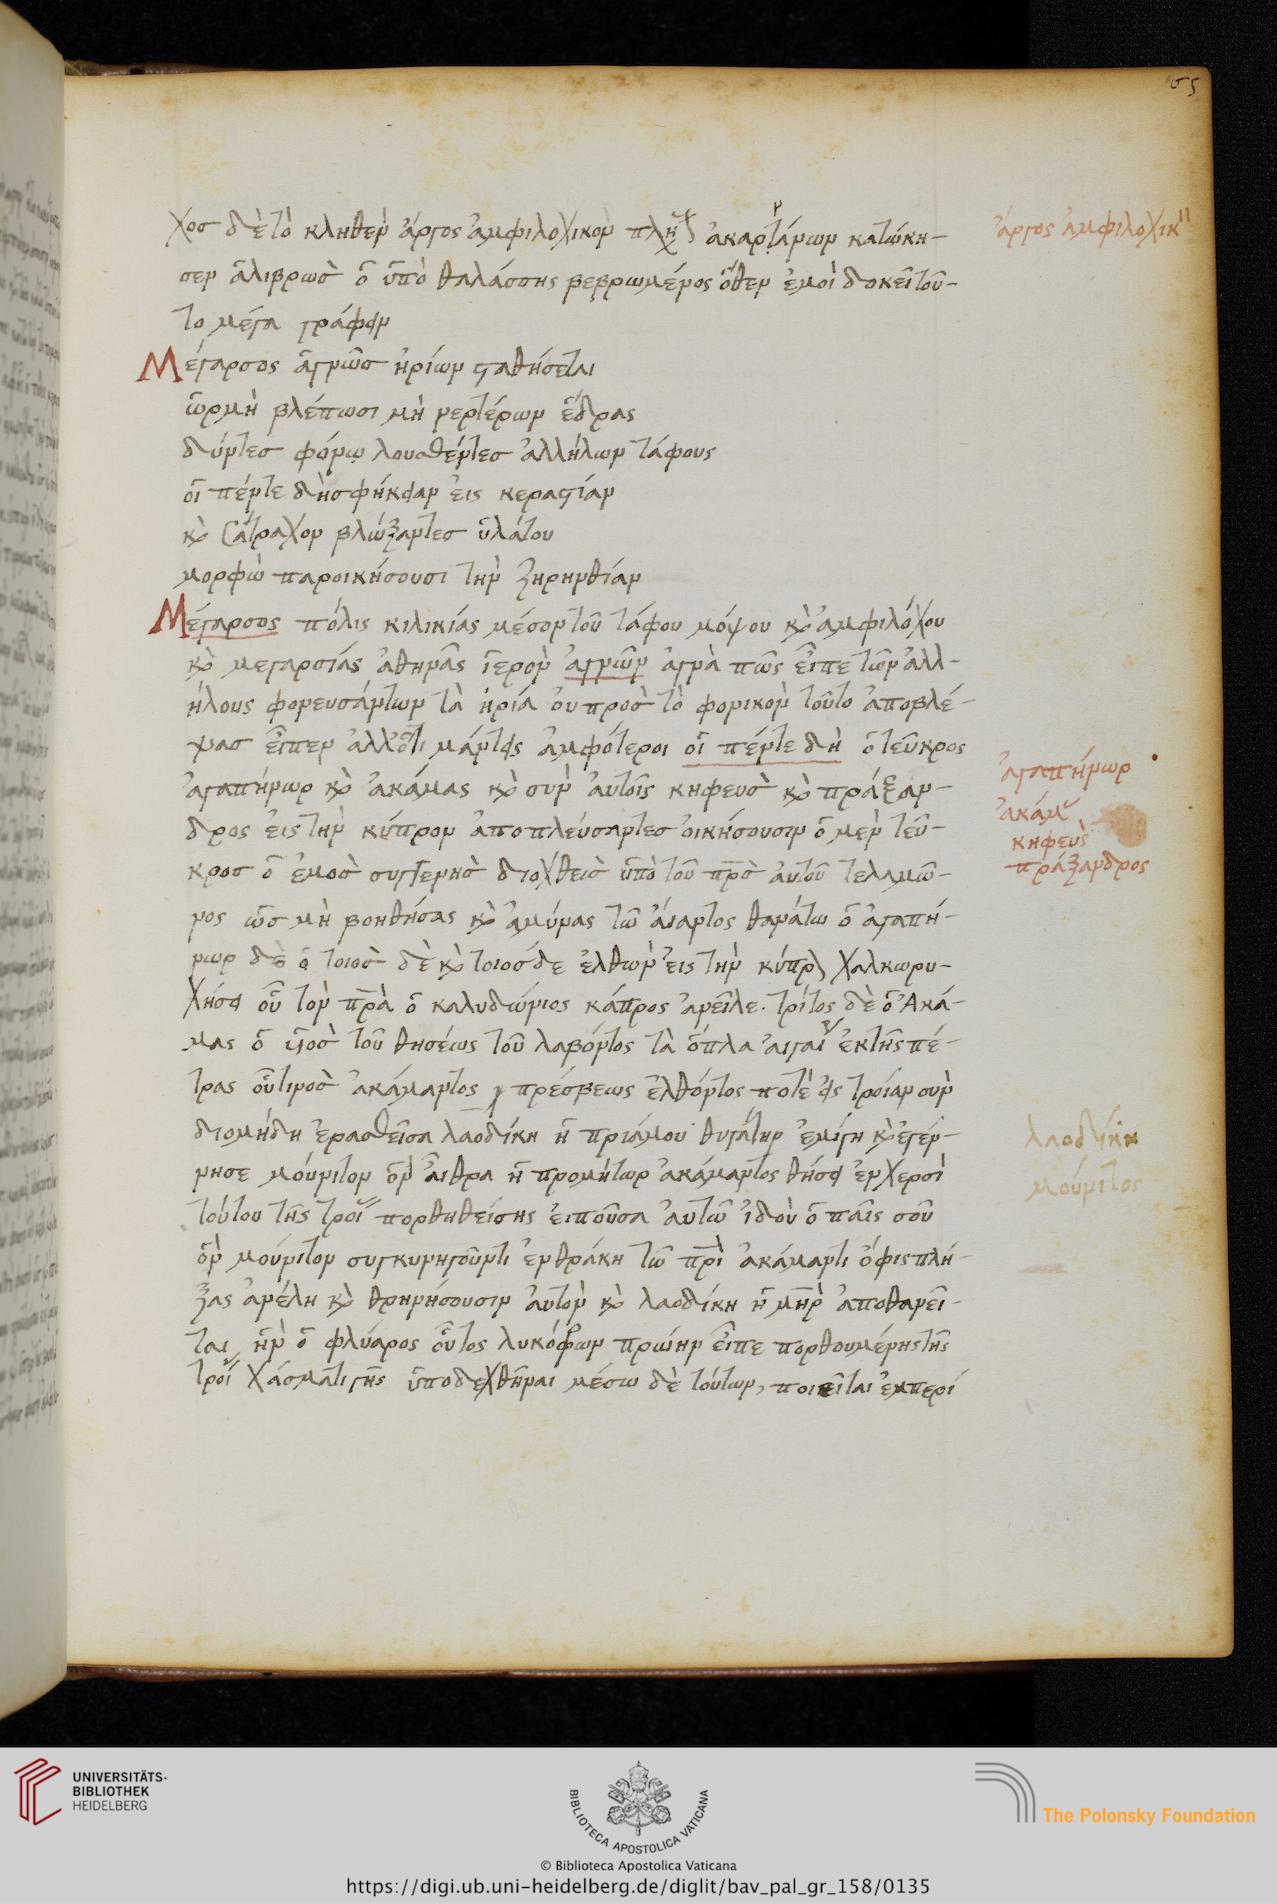 65
χος δὲ τὸ κληθὲν ἄργος ἀμφιλοχικὸν ἀκαρνάνων κατώκη-
σεν ἁλιβρὼς ὁ ὑπὸ θαλάσσης βεβρωμένος ὅθεν ἐμοὶ δοκεῖ τοῦ-
το μέγα γράφειν
Μέγαρσος ἁγνῶν ἠρίων σταθήσεται
ὡς μὴ βλέπωσι μὴ νερτέρων ἕδρας
δύντες φόνω λουσθέντες ἀλλήλων τάφους
οἱ πέντε δὴ σφήκειαν εἰς κεραστίαν
καὶ Σάτραχον βλώξαντες ὑλάτου
μορφὼ παροικήσουσι τὴν ζηρηνθίαν
Μέγαρσος πόλις κιλικίας μέσον τοῦ τάφου μόψου καὶ ἀμφιλόχου
καὶ μεγαρσίας ἀθηνᾶς ἱερὸν ἁγνῶν ἁγνὰ πῶς εἶπε τῶν ἀλλ-
ήλους φονευσάντων τὰ ἠρία οὐ πρὸς τὸ φονικὸν τοῦτο ἀποβλέ-
ψας εἶπεν ἀλλ' ὅτι μάντεις ἀμφότεροι οἱ πέντε δὴ ὁ τεῦκρος
ἀγαπήνωρ καὶ ἀκάμας καὶ σὺν αὐτοῖς κηφεὺς καὶ πράξαν-
δρος εἰς τὴν κύπρον ἀποπλεύσαντες οἰκήσουσιν ὁ μὲν τεῦ-
κρος ὁ ἐμὸς συγγενὴς διωχθεὶς ὑπὸ τοῦ πρς αὐτοῦ τελαμῶ-
νος ὡς μὴ βοηθήσας καὶ ἀμύνας τῶ αἴαντος θανάτω ὁ ἀγαπή-
νωρ δὲ ὁ τοιὸς δὲ καὶ τοιόσδε ἐλθὼν εἰς τὴν κύπρον χαλκωρυ-
χήσει οὗ τὸν πρα ὁ καλυδώνιος κάπρος ἀνεῖλε. τρίτος δὲ ὁ Ἀκά-
μας ὁ υἱὸς τοῦ θησέως τοῦ λαβόντος τὰ ὅπλα αἰγαίου ἐκ τῆς πέ-
τρας οὗτινος ἀκάμαντος πρέσβεως ἐλθόντος ποτὲ εἰς τροίαν σὺν
διομήδη ἐρασθεῖσα λαοδίκη ἡ πριάμου θυγάτηρ ἐμίγη καὶ ἐγέν-
νησε μούνιτον ὃν αἶθρα ἡ προμήτωρ ἀκάμαντος θήσει ἐν χερσὶ
τούτου τῆς τροί πορθηθείσης εἰποῦσα αὐτῶ ἰδοὺ ὁ παῖς σοῦ
ὃν μούνιτον συγκυνηγοῦντι ἐν θράκη τῶ πρι ἀκάμαντι ὄφις πλή-
ξας ἀνέλη καὶ θρηνήσουσιν αὐτὸν καὶ λαοδίκη ἡ μηρ ἀποθανεῖ-
ται ἣν ὁ φλύαρος οὗτος λυκόφρων πρώην εἶπε πορθουμένης τῆς
τροί χάσματι γῆς ὑποδεχθῆναι μέσω δὲ τούτων, ποιεῖται ἐμπερί
ἄργος ἀμφιλοχικ
ἀγαπήνωρ
ἀκάμ
κηφεὺς
πράξανδρος
λαοδίκη
μούνιτος
UNIVERSITÄTS-
BIBLIOTHEK
HEIDELBERG
BIBLIOTECA APOSTOLICA VATICANA
The Polonsky Foundation
© Biblioteca Apostolica Vaticana
https://digi.ub.uni-heidelberg.de/diglit/bav_pal_gr_158/0135